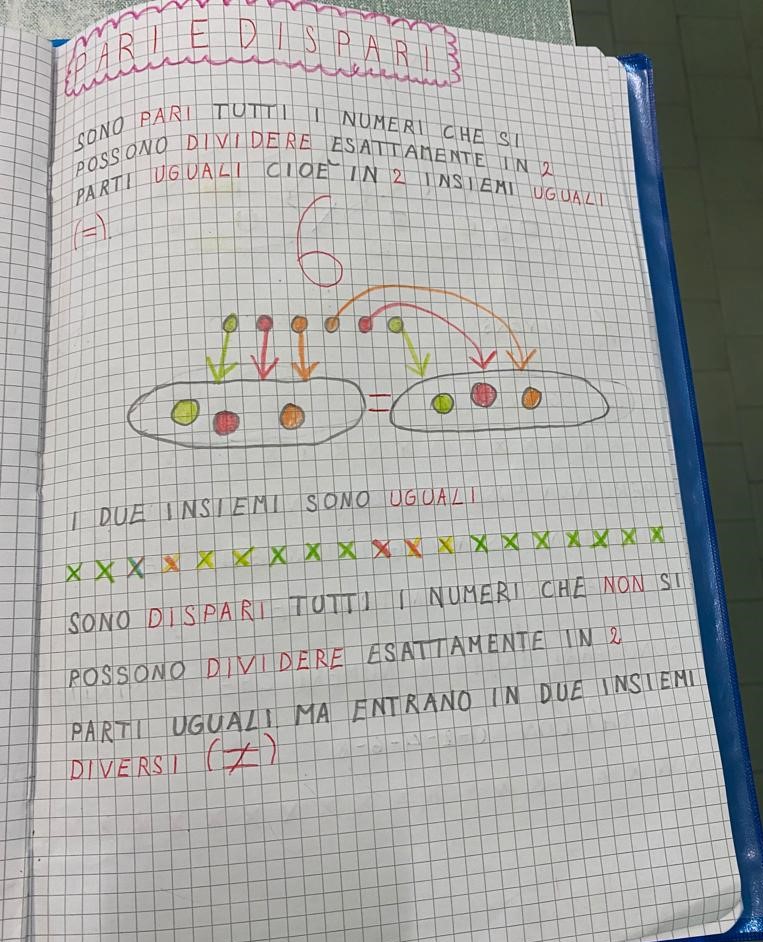 PARI E DISPARI
SONO PARI TUTTI I NUMERI CHE SI
POSSONO DIVIDERE ESATTAMENTE IN 2
PARTI UGUALI CIOE' IN 2 INSIEMI UGUALI
(=).
6
=
I DUE INSIEMI SONO UGUALI
X X X X X X X X X X X X X X X X X X X
SONO DISPARI TUTTI I NUMERI CHE NON SI
POSSONO DIVIDERE ESATTAMENTE IN 2
PARTI UGUALI MA ENTRANO IN DUE INSIEMI
DIVERSI (≠)